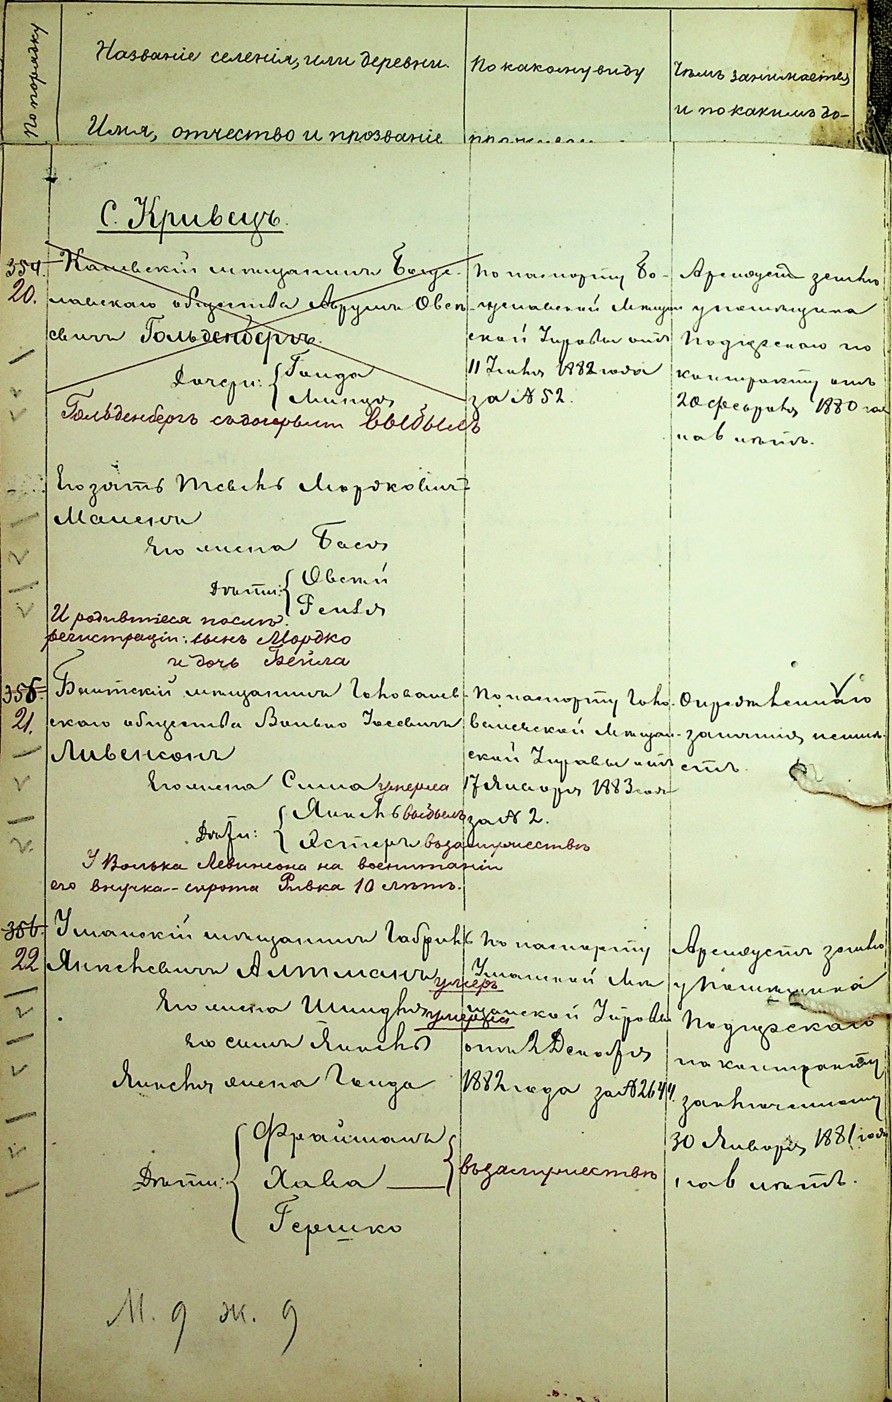 По порядку
Названіе селенія, или деревни.
Имя, отчество и прозваніе
По какому виду
Чѣмъ занимается
и по какимъ до-
С. Кривецъ.
354.
20.
Каневскій мещанинъ Богу-
славскаго общества Аврумъ Овсѣ-
евичъ Гольденбергъ.
Дочери: Гольда
Гольденбергъ выбылъ
По паспорту Бо-
гуславской Мещан
ской Управы отъ
11 Іюня 1882 года
за № 52.
Арендуетъ землю
у помещика
Подгурскаго по
контракту отъ
20 февраля 1880 года
на 6 лѣтъ.
Его зять Тевель Мордковичъ
Его жена Бася
Дѣти: Овсѣй
Гентя
И родившіеся послѣ
регистраціи: сынъ Мордко
и дочь Бейла
355.
21.
скаго общества Волько Іосевичъ
Ливенсонъ
Его жена Сима умерла
Дѣти: Янкель выбылъ
Эстеръ въ замужествѣ
У Волька Левинсона на воспитаніи
его внучка-сирота Ривка 10 лѣтъ.
По паспорту
Мещан-
ской Управы отъ
17 Января 1883 года
за № 2.
Опредѣленнаго
занятія не имѣ-
етъ.
356.
22
Уманскій мещанинъ Габріель
Янкелевичъ Алтманъ умеръ
Его жена Шиндля умерла
Его сынъ Янкель
Янкеля жена Гольда
Дѣти: Фрайманъ
Хава въ замужествѣ
Гершко
По паспорту
Уманской Ме
щанской Управы
отъ 2 Декабря
1882 года за № 2644.
Арендуетъ землю
у Помещика
Подгурскаго
по контракту
заключенному
30 Января 1881 года
на 6 лѣтъ.
М. 9 ж. 9